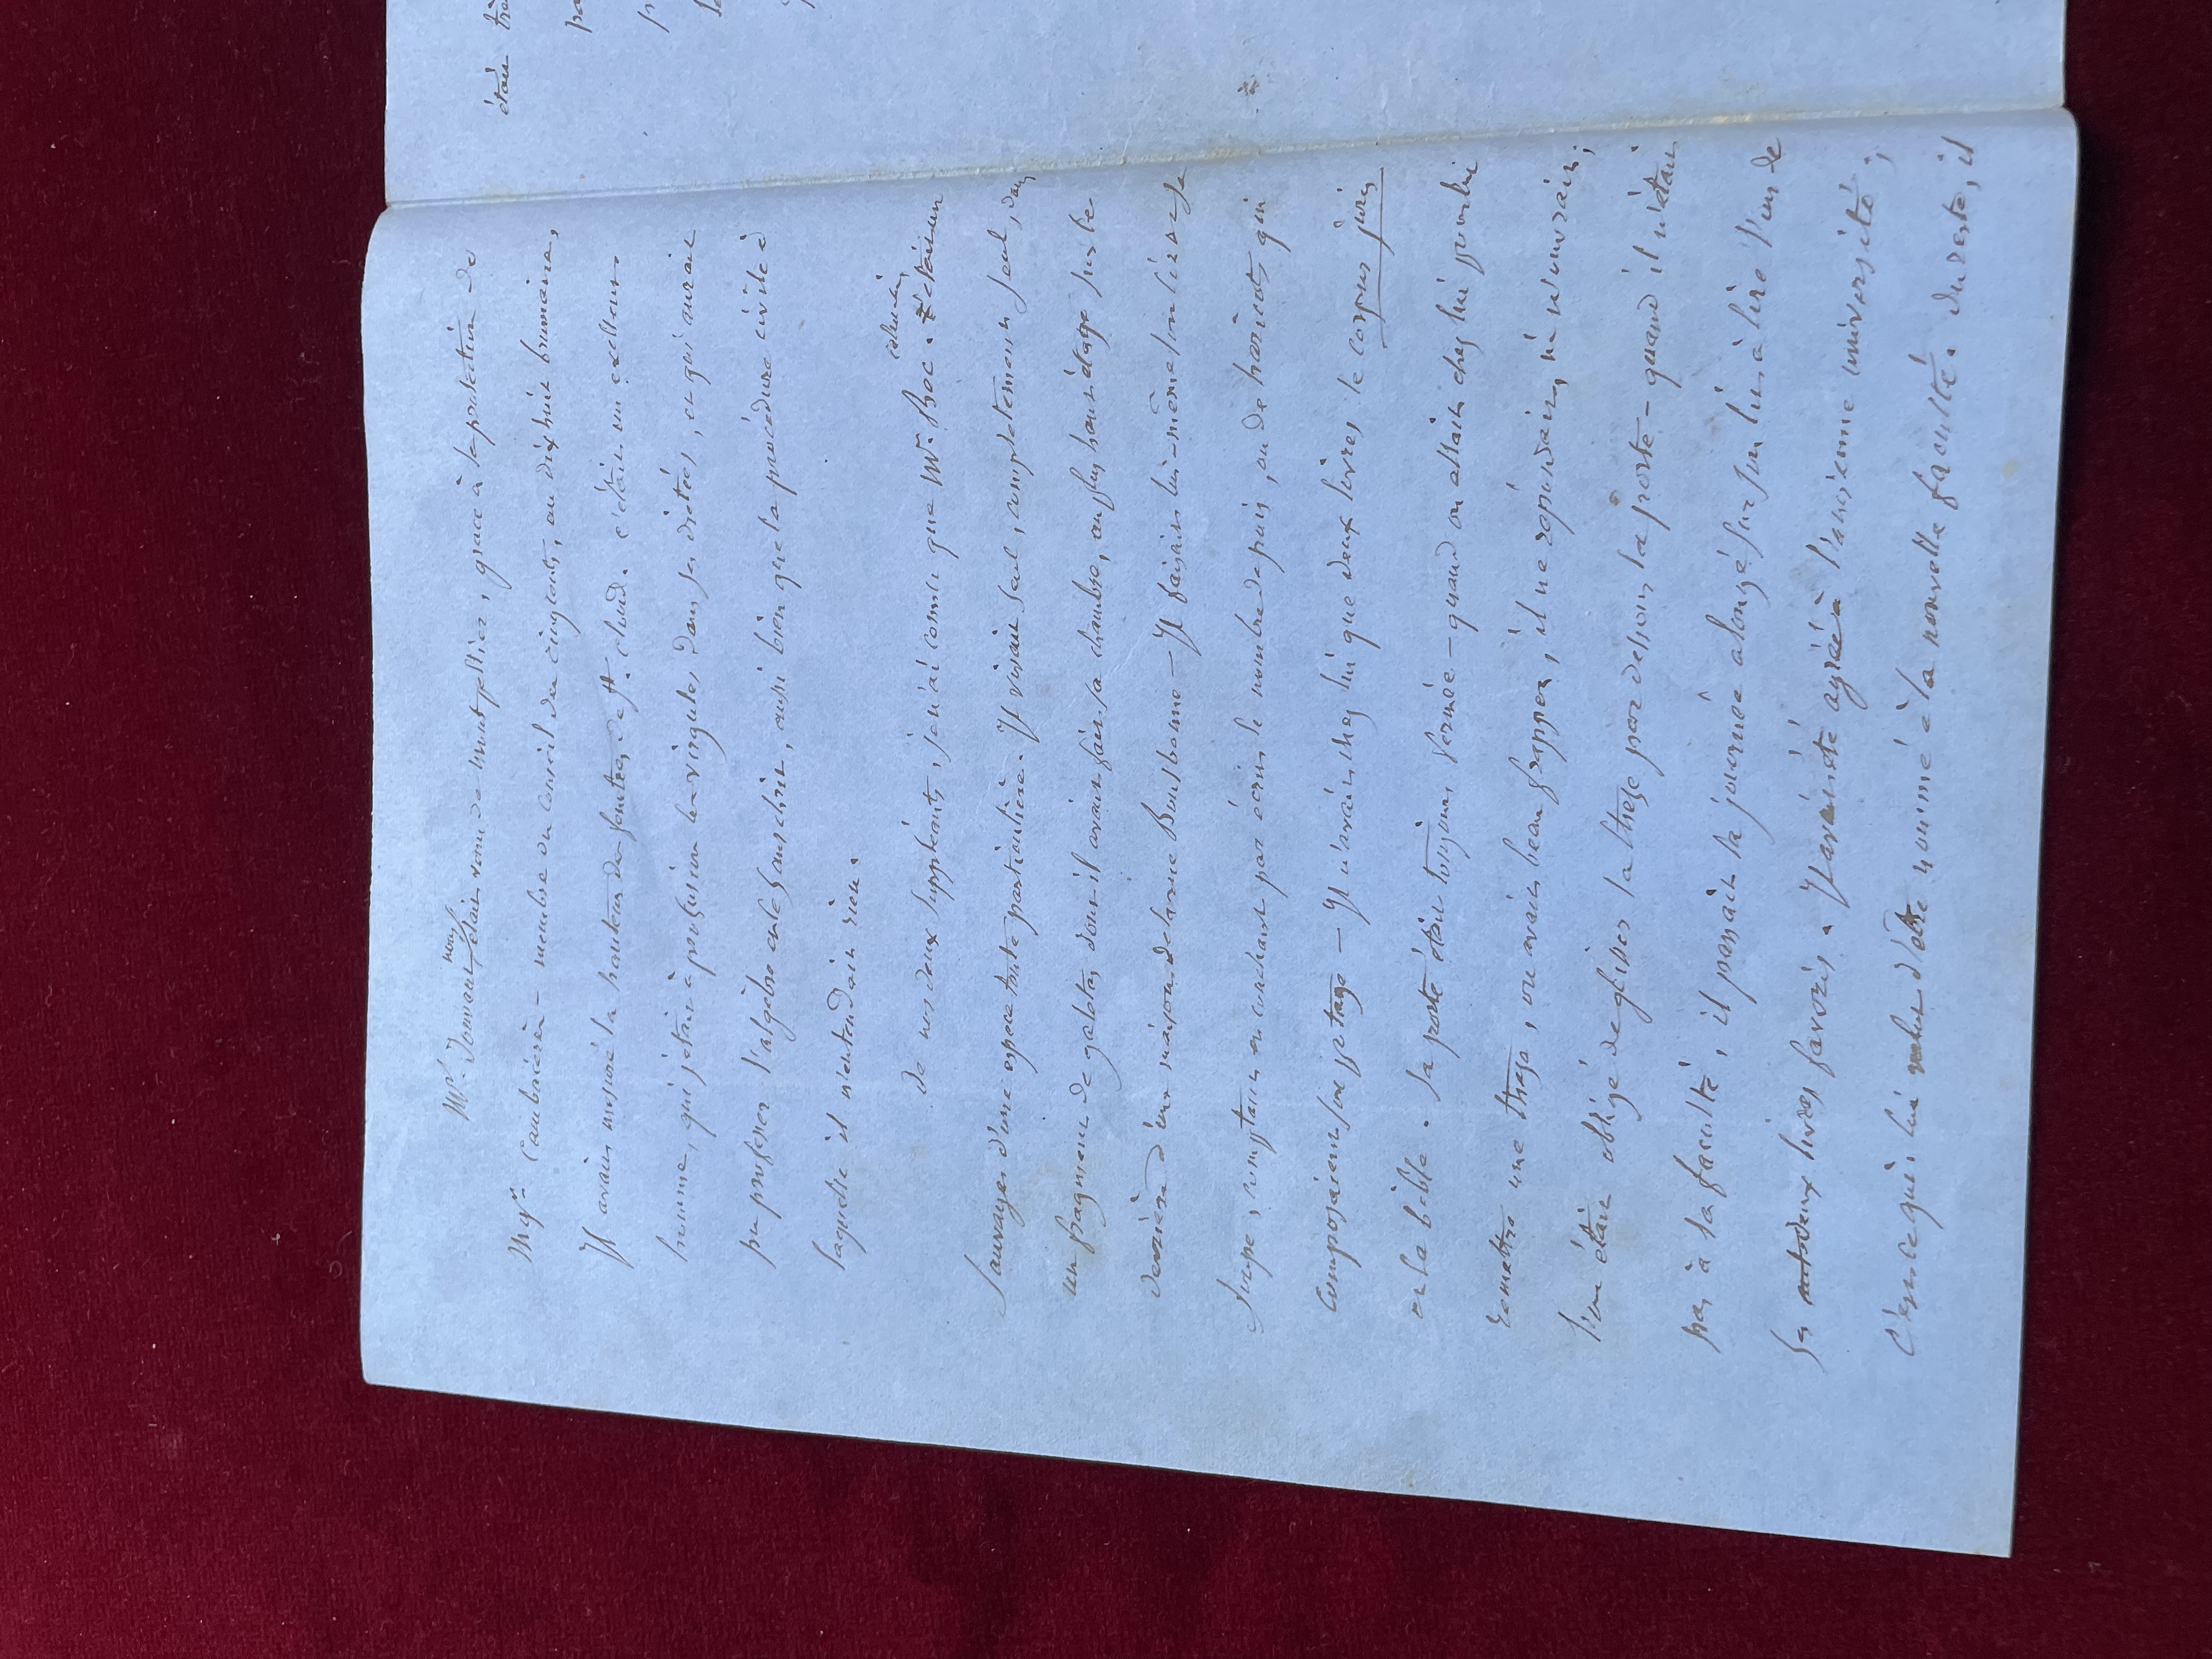 nous
Mr. Jouvent était venu de montpellier, grace à la protection de
Mgr Cambacérès – membre du conseil des cinqcents, au dix huit brumaire,
Il avait mesuré la hauteur des fenêtres de St. cloud. c'était un excellent
homme, qui jetait à profusion les virgules, dans ses dictées, et qui aurait
pu professer l'algèbre ou le sanscrit, aussi bien que la procédure civile à
laquelle il n'entendait rien.
De nos deux suppléants, je n'ai connu que Mr. Boc. c'était un
celui-ci
sauvage d'une espece toute particulière. Il vivait seul, completement seul, dans
un fragment de galetas dont il avait fait sa chambre, au plus haut étage sur le
derrière d'une maison de la rue Bourbonne – Il faisait lui-même son lit et sa
soupe, comptant en couchant par écrit le nombre de pois, ou de haricots qui
composaient son potage – Il n'avait chez lui que deux livres, le corpus juris
et la bible. Sa porte était toujours fermée – quand on allait chez lui pour lui
remettre une these, on avait beau frapper, il ne répondait, ni n'ouvrait;
l'on était obligé de glisser la these par dessous la porte – quand il n'était
pas à la faculté, il passait la journée alongé sur son lit à lire l'un de
ses deux livres favoris. Il avait été agrégé à l'ancienne université;
C'est ce qui lui valut d'être nommé à la nouvelle faculté. Du reste, il
était très